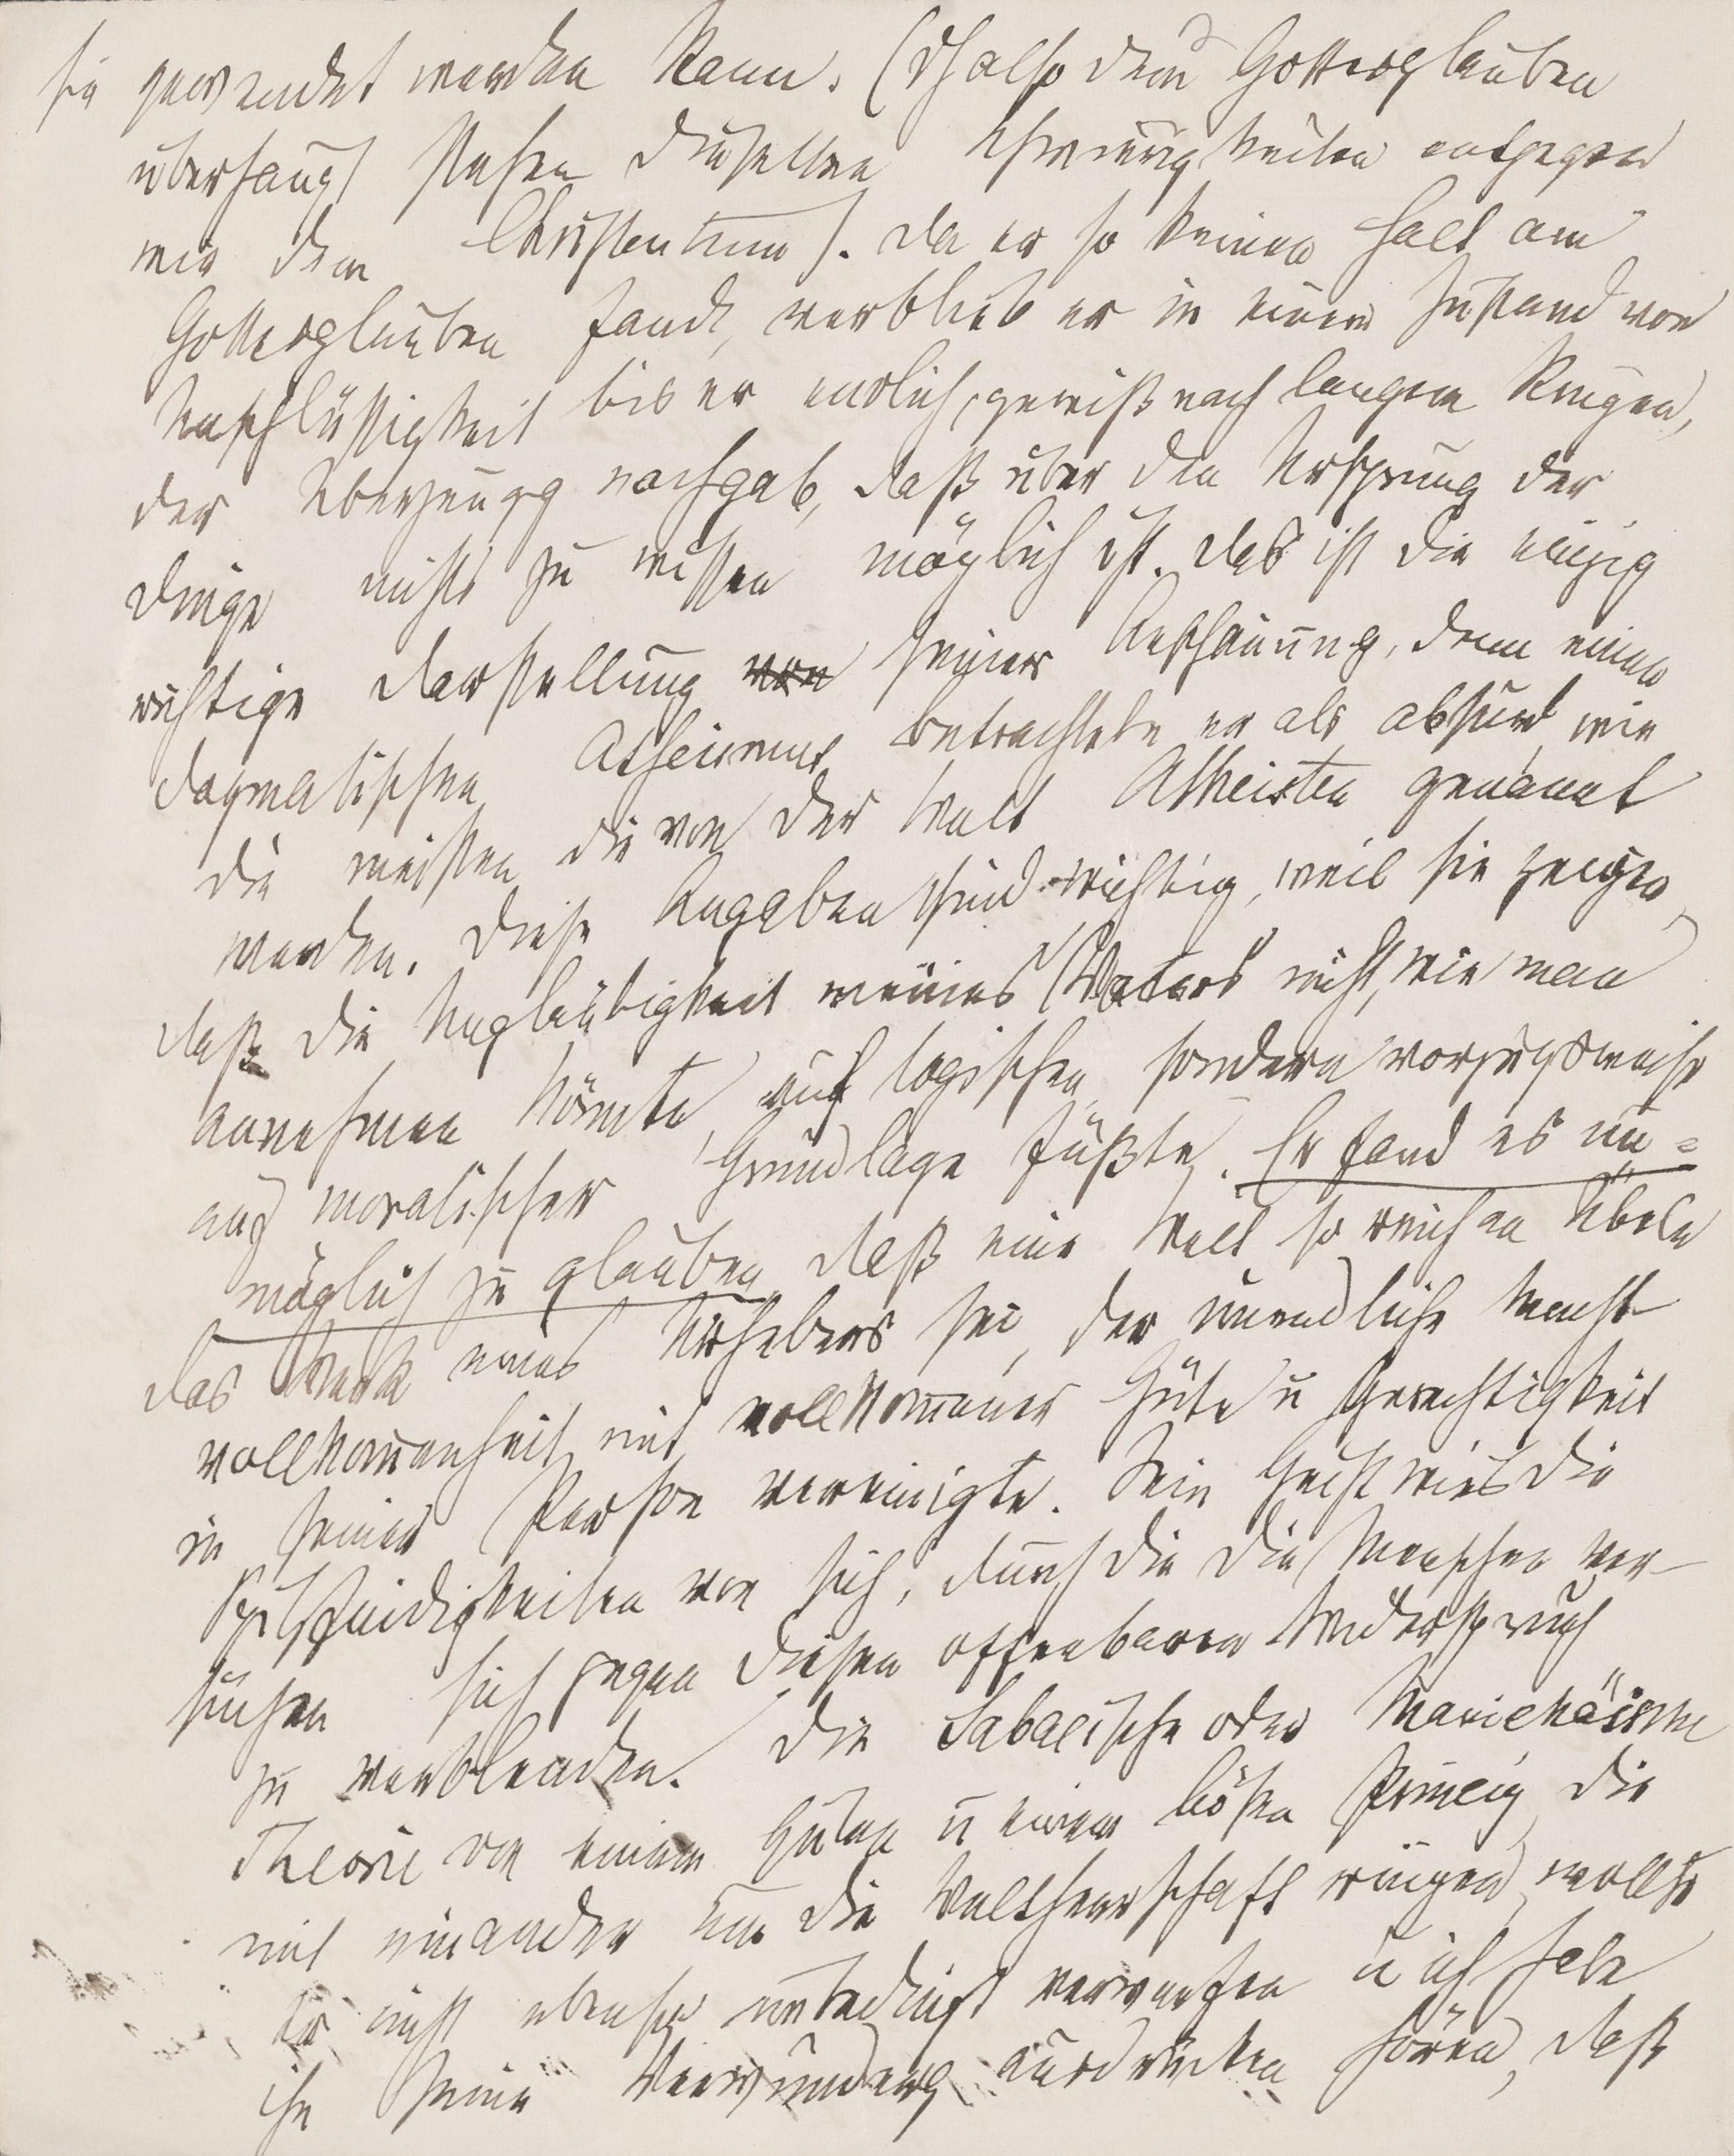 sie gewendet werden kann. (Deshalb dem Gottesglauben
überhaupt stehen dieselben Schwierigkeiten entgegen
wie dem Christentum). Da er so keinen Halt am
Gottesglauben fand, verblieb er in einem Zustand von
Unschlüssigkeit bis er endlich, gewiß nach langem Ringen,
der Überzeugg nachgab, daß über den Ursprung der
Dinge nichts zu wissen möglich ist. Das ist die einzig
richtige Darstellung von seiner Anschauung, denn einen
dogmatischen Atheismus betrachtete er als absurd wie
die meisten die von der Welt Atheisten genannt
werden. Diese Angaben sind wichtig, weil sie zeigen,
daß die Ungläubigkeit meines Vaters nicht, wie man
annehmen könnte, auf logischer sondern vorzugsweise
auf moralischer Grundlage fußte. Er fand es un=
möglich zu glauben, daß eine Welt so reich an Übeln
das Werk eines Urhebers sei, der unendliche Macht
vollkom̄enheit mit vollkom̄ener Güte u Gerechtigkeit
in seiner Person vereinigte. Sein Geist wies die
Spitzfindigkeiten von sich, durch die die Menschen ver-
suchen sich gegen diesen offenbaren Widerspruch
zu verblenden. Die Sabäische oder Manichäische
Theorie von einem guten u einem bösen Princip, die
mit einander um die Weltherrschaft ringen, wollte
er nicht ebenso unbedingt verwerfen u ich habe
ihn seine Verwunderg ausdrücken hören, daß